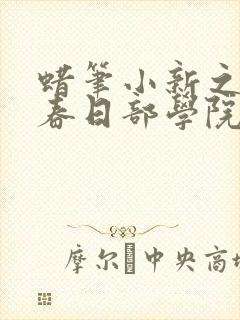 蜡筆小新之
春日部學院
摩尔中央商